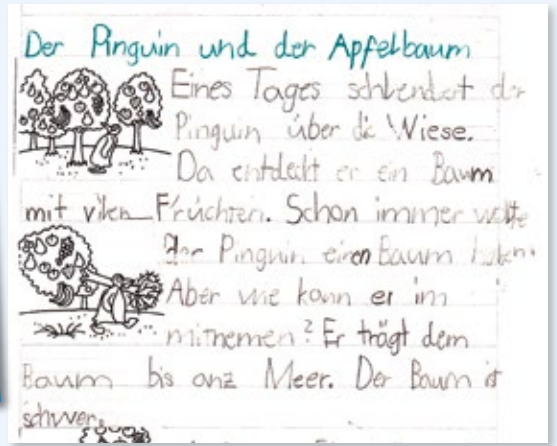 Der Pinguin und der Apfelbaum
Eines Tages schlendert der
Pinguin über die Wiese.
Da entdekt er ein Baum
mit vilen Früchten. Schon immer wollte
der Pinguin einen Baum haben.
Aber wie kann er im
mitnemen? Er trägt dem
Baum bis anz Meer. Der Baum ist
schwer.